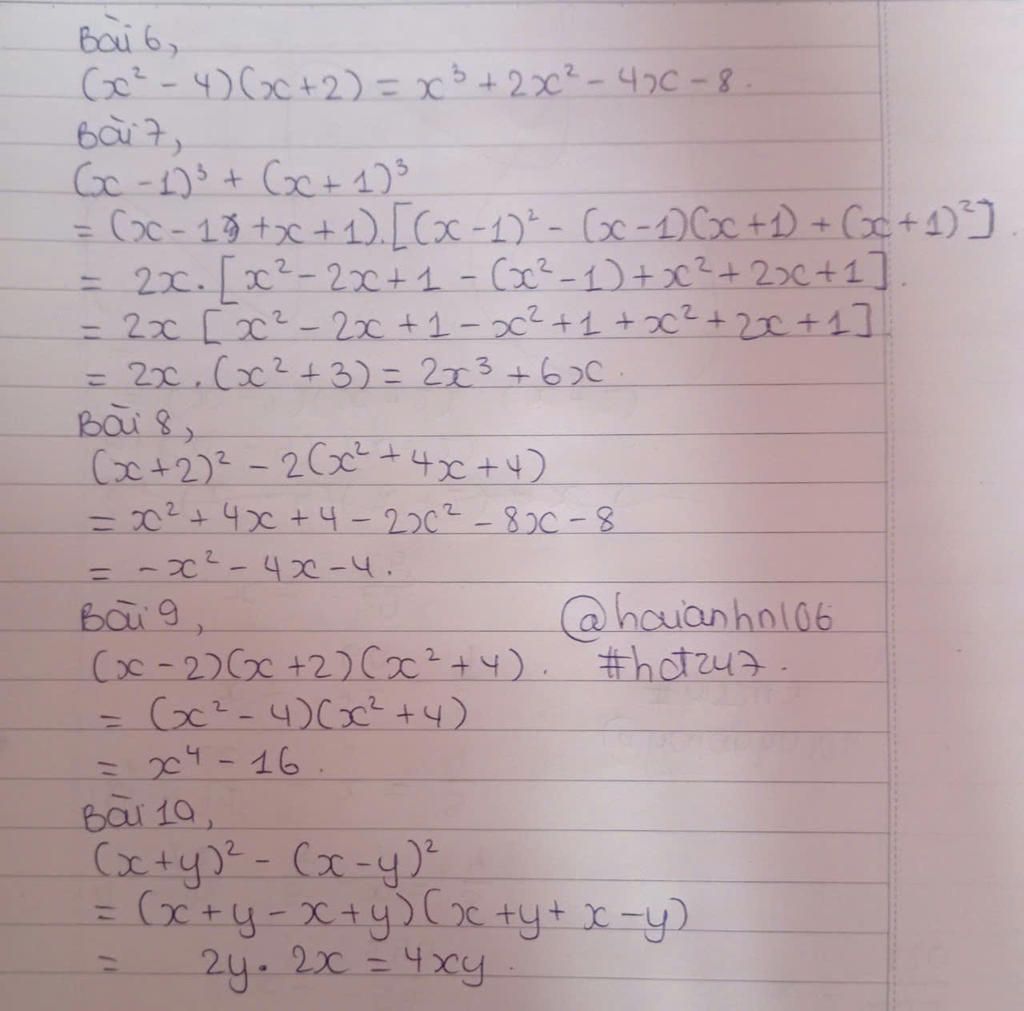 Bài 6,
(x² - 4)(x+2) = x³ + 2x² - 4x - 8.
Bài 7,
(x - 1)³ + (x + 1)³
= (x - 1 + x + 1).[(x - 1)² - (x - 1)(x + 1) + (x + 1)²].
= 2x.[x² - 2x + 1 - (x² - 1) + x² + 2x + 1].
= 2x [x² - 2x + 1 - x² + 1 + x² + 2x + 1]
= 2x.(x² + 3) = 2x³ + 6x.
Bài 8,
(x + 2)² - 2(x² + 4x + 4)
= x² + 4x + 4 - 2x² - 8x - 8
= -x² - 4x - 4.
Bài 9,
@haianhn106
(x - 2)(x + 2)(x² + 4). #hdt247.
= (x² - 4)(x² + 4)
= x⁴ - 16.
Bài 10,
(x + y)² - (x - y)²
= (x + y - x + y)(x + y + x - y)
= 2y. 2x = 4xy.